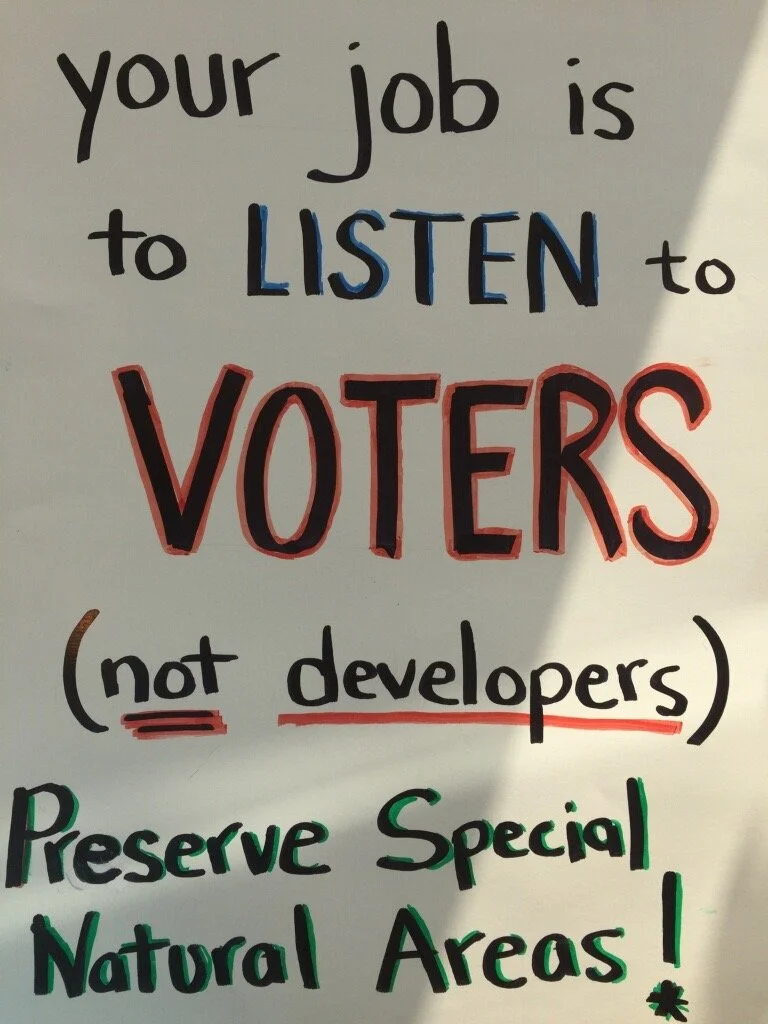 your job is
to LISTEN to
VOTERS
(not developers)
Preserve Special
Natural Areas!